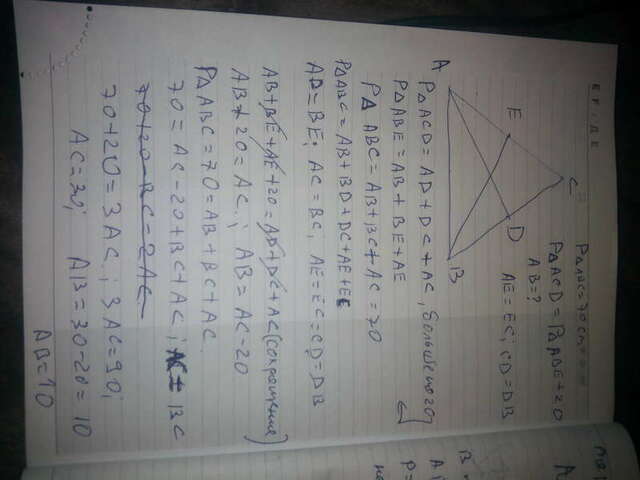 P△ABC=70 cm
P△ACD=P△ABE+20
AB=?
AE=EC; CD=DB
C
E
D
A
B
P△ACD=AD+DC+AC,
P△ABE=AB+BE+AE
P△ABC=AB+BC+AC=70
P△ABC=AB+BD+DC+AE+EC
AD=BE; AC=BC, AE=EC=CD=DB
AB+BE+AE+20=AD+DC+AC (сокращение)
AB+20=AC.; AB=AC-20
P△ABC=70=AB+BC+AC.
70=AC-20+BC+AC; AC=BC
70+20-BC=2AC
70+20=3AC.; 3AC=90;
AC=30; AB=30-20=10
AB=10